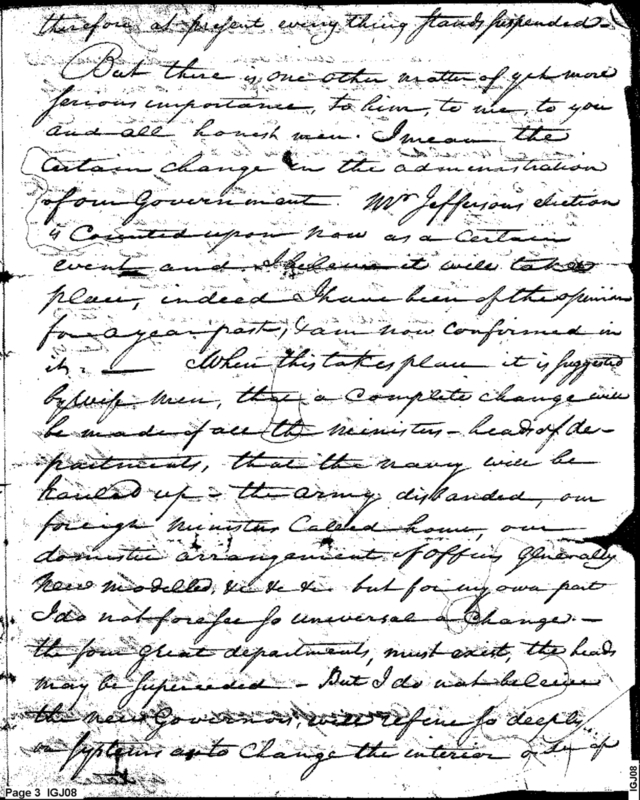 therefore at present every thing stands suspended -
But there is one other matter of yet more
serious importance, to him, to me, to you
and all honest men. I mean the
Certain change in the administration
of our Government. Mr Jeffersons election
is Counted upon now as a Certain
event and I believe it will take
place, indeed I have been of the opinion
for a year past, & am now Confirmed in
it. — When this takes place it is suggested
by wise men, that a Complete change will
be made of all the ministers - heads of de-
partments, that the navy will be
hauled up - the army disbanded, our
foreign ministers Called home, our
domestic arrangement of Offices generally
New modelled, &c &c &c. but for my own part
I do not foresee so universal a Change. -
the four great departments, must exist, the heads
may be superceded - But I do not believe
the new Governors, will refine so deeply
on systems as to Change the interior order of
Page 3 IGJ08
IGJ08